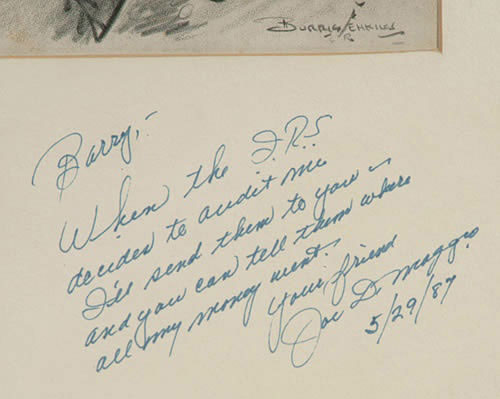 BURRIS JENKINS
JR.
Barry,-
When the I.R.S
decides to audit me
I'll send them to you -
and you can tell them where
all my money went.
Your friend
Joe Di Maggio
5/29/87